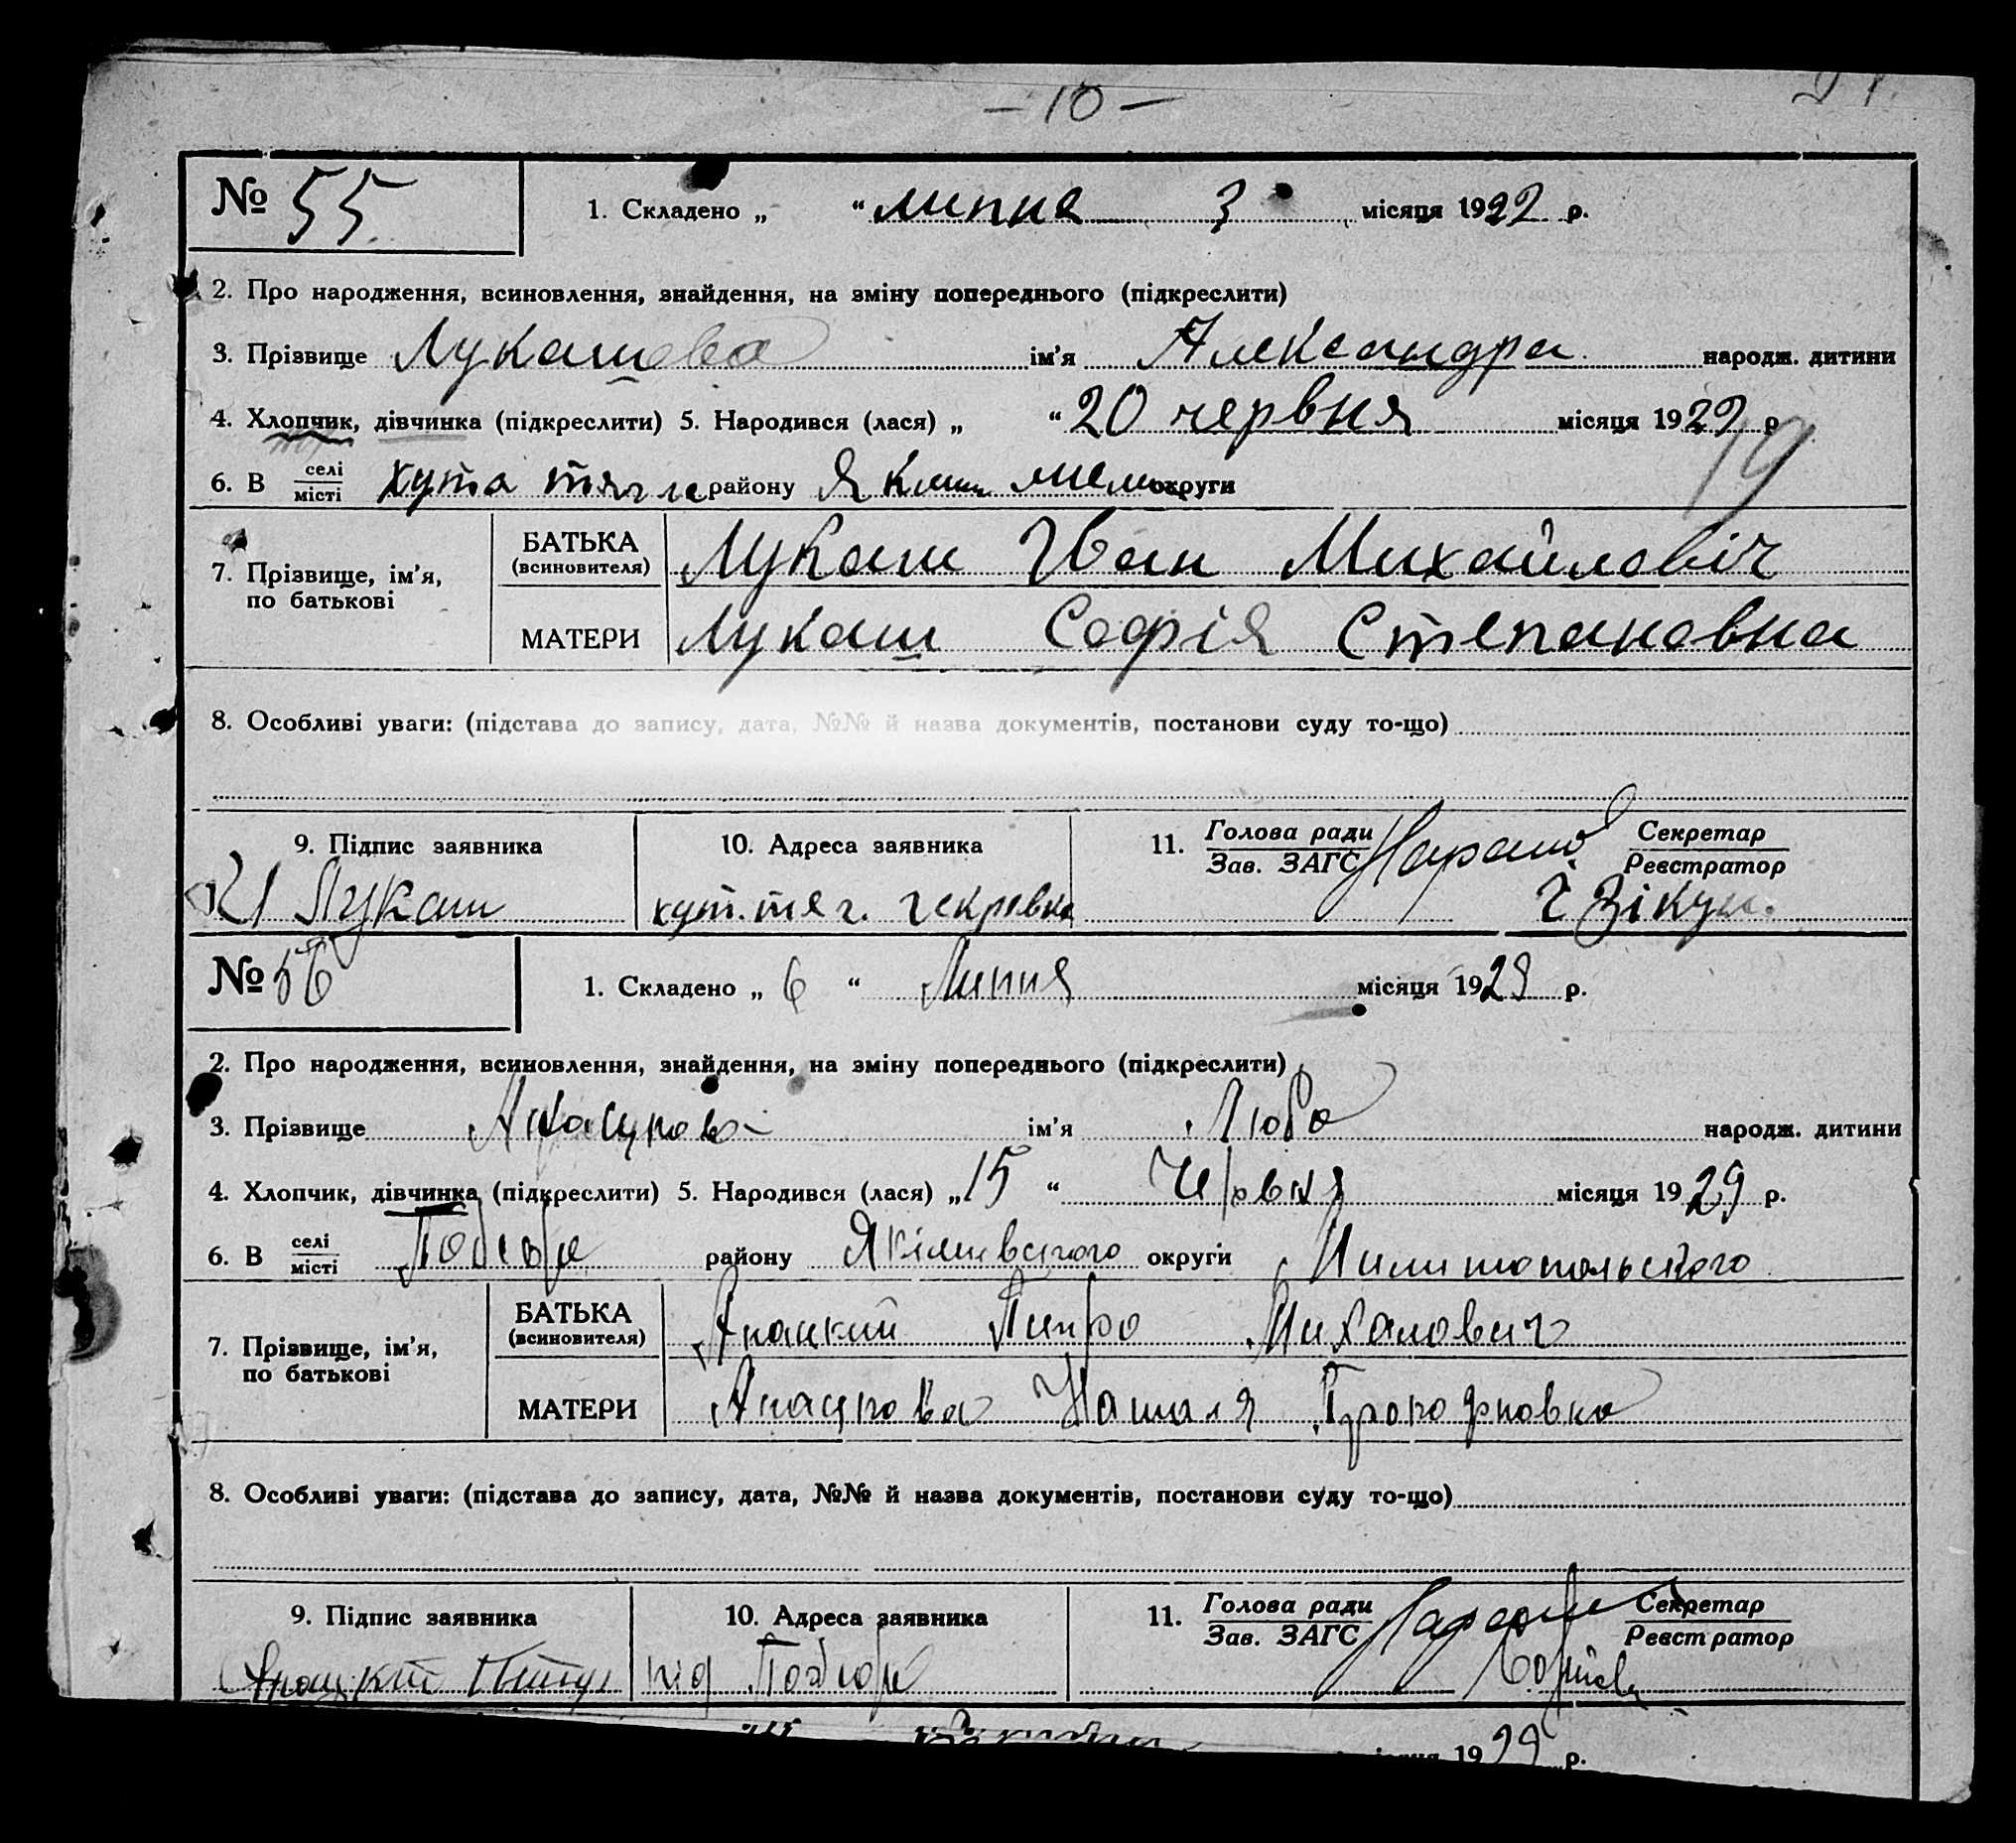 – 10 –
№ 55
1. Складено „ “ липня 3 місяця 1929 р.
2. Про народження, всиновлення, знайдення, на зміну попереднього (підкреслити)
3. Прізвище Лукашова ім’я Александра народж. дитини
4. Хлопчик, дівчинка (підкреслити) 5. Народився (лася) „ “ 20 червня місяця 1929 р
19
6. В селі місті хута тягле району Яким мел округи
7. Прізвище, ім’я, по батькові
БАТЬКА (всиновителя) Лукаш Іван Михайловіч
МАТЕРИ Лукаш Софія Степановна
8. Особливі уваги: (підстава до запису, дата, №№ й назва документів, постанови суду то-що)
9. Підпис заявника 10. Адреса заявника 11. Голова ради Зав. ЗАГС Секретар Реєстратор
Лукаш хут. тяг.
№ 56
1. Складено „ 6 “ Липня місяця 1929 р.
2. Про народження, всиновлення, знайдення, на зміну попереднього (підкреслити)
3. Прізвище ім’я Люба народж. дитини
4. Хлопчик, дівчинка (підкреслити) 5. Народився (лася) „ 15 “ Червня місяця 1929 р.
6. В селі місті району Якімівського округи
7. Прізвище, ім’я, по батькові
БАТЬКА (всиновителя) Михалович
МАТЕРИ Наталя
8. Особливі уваги: (підстава до запису, дата, №№ й назва документів, постанови суду то-що)
9. Підпис заявника 10. Адреса заявника 11. Голова ради Зав. ЗАГС Секретар Реєстратор
1929 р.